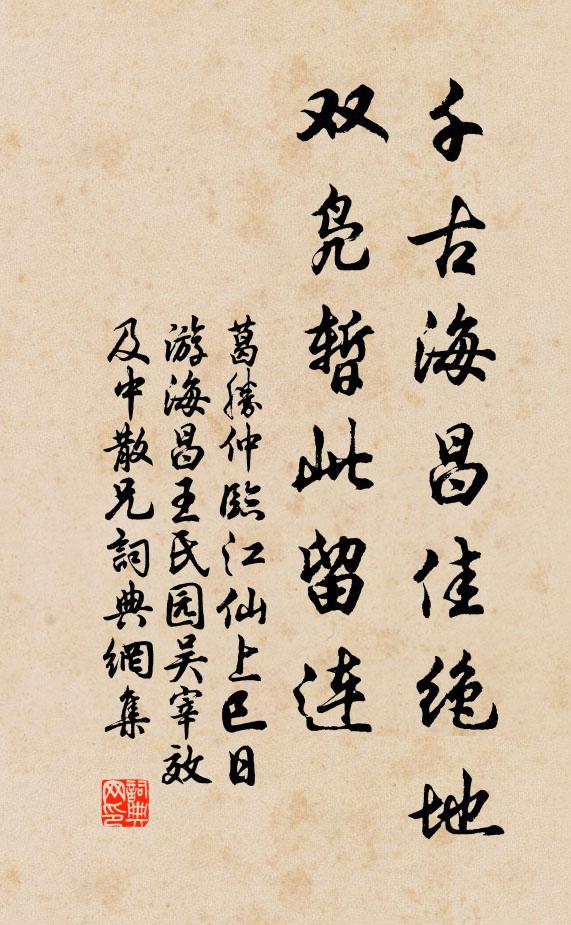 千古海昌佳绝地
双凫暂此留连
葛胜仲臨江仙上巳日
游海昌王氏园吴宰效
及中散兄詞典網集
詞典網印